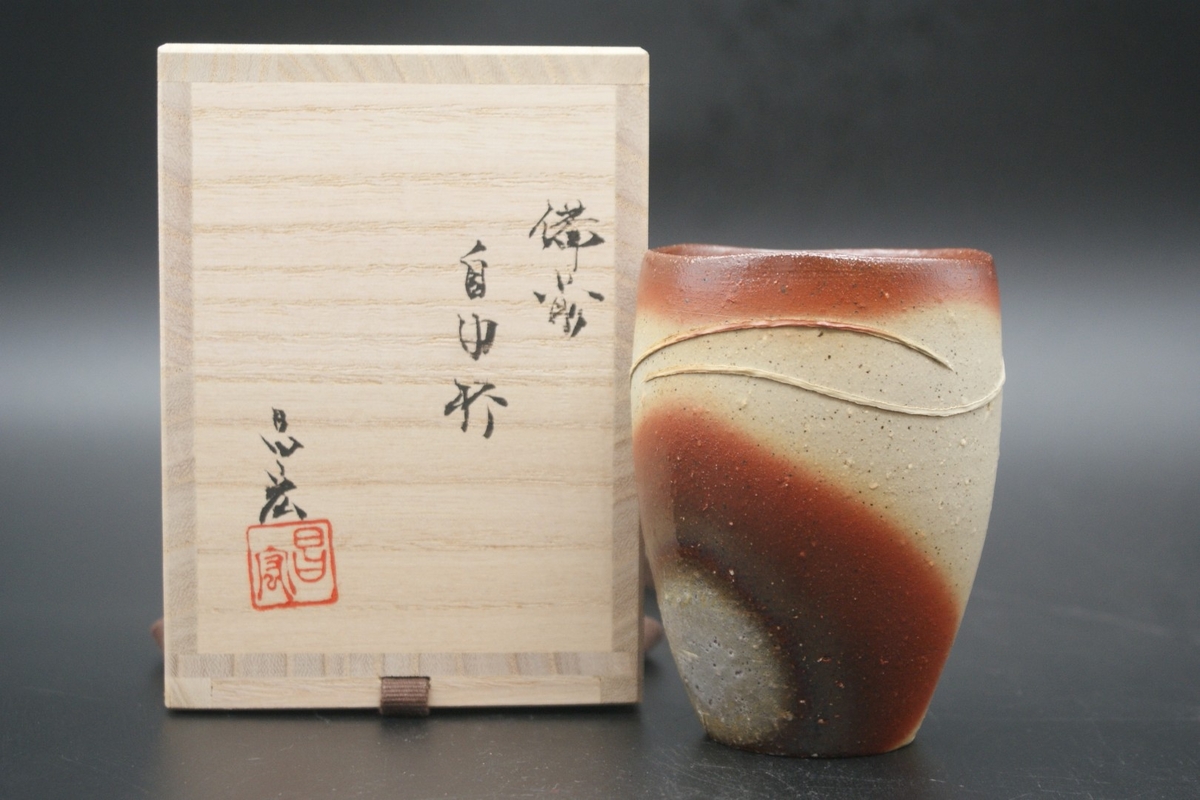 備前
自由杯
昌宏
昌宏